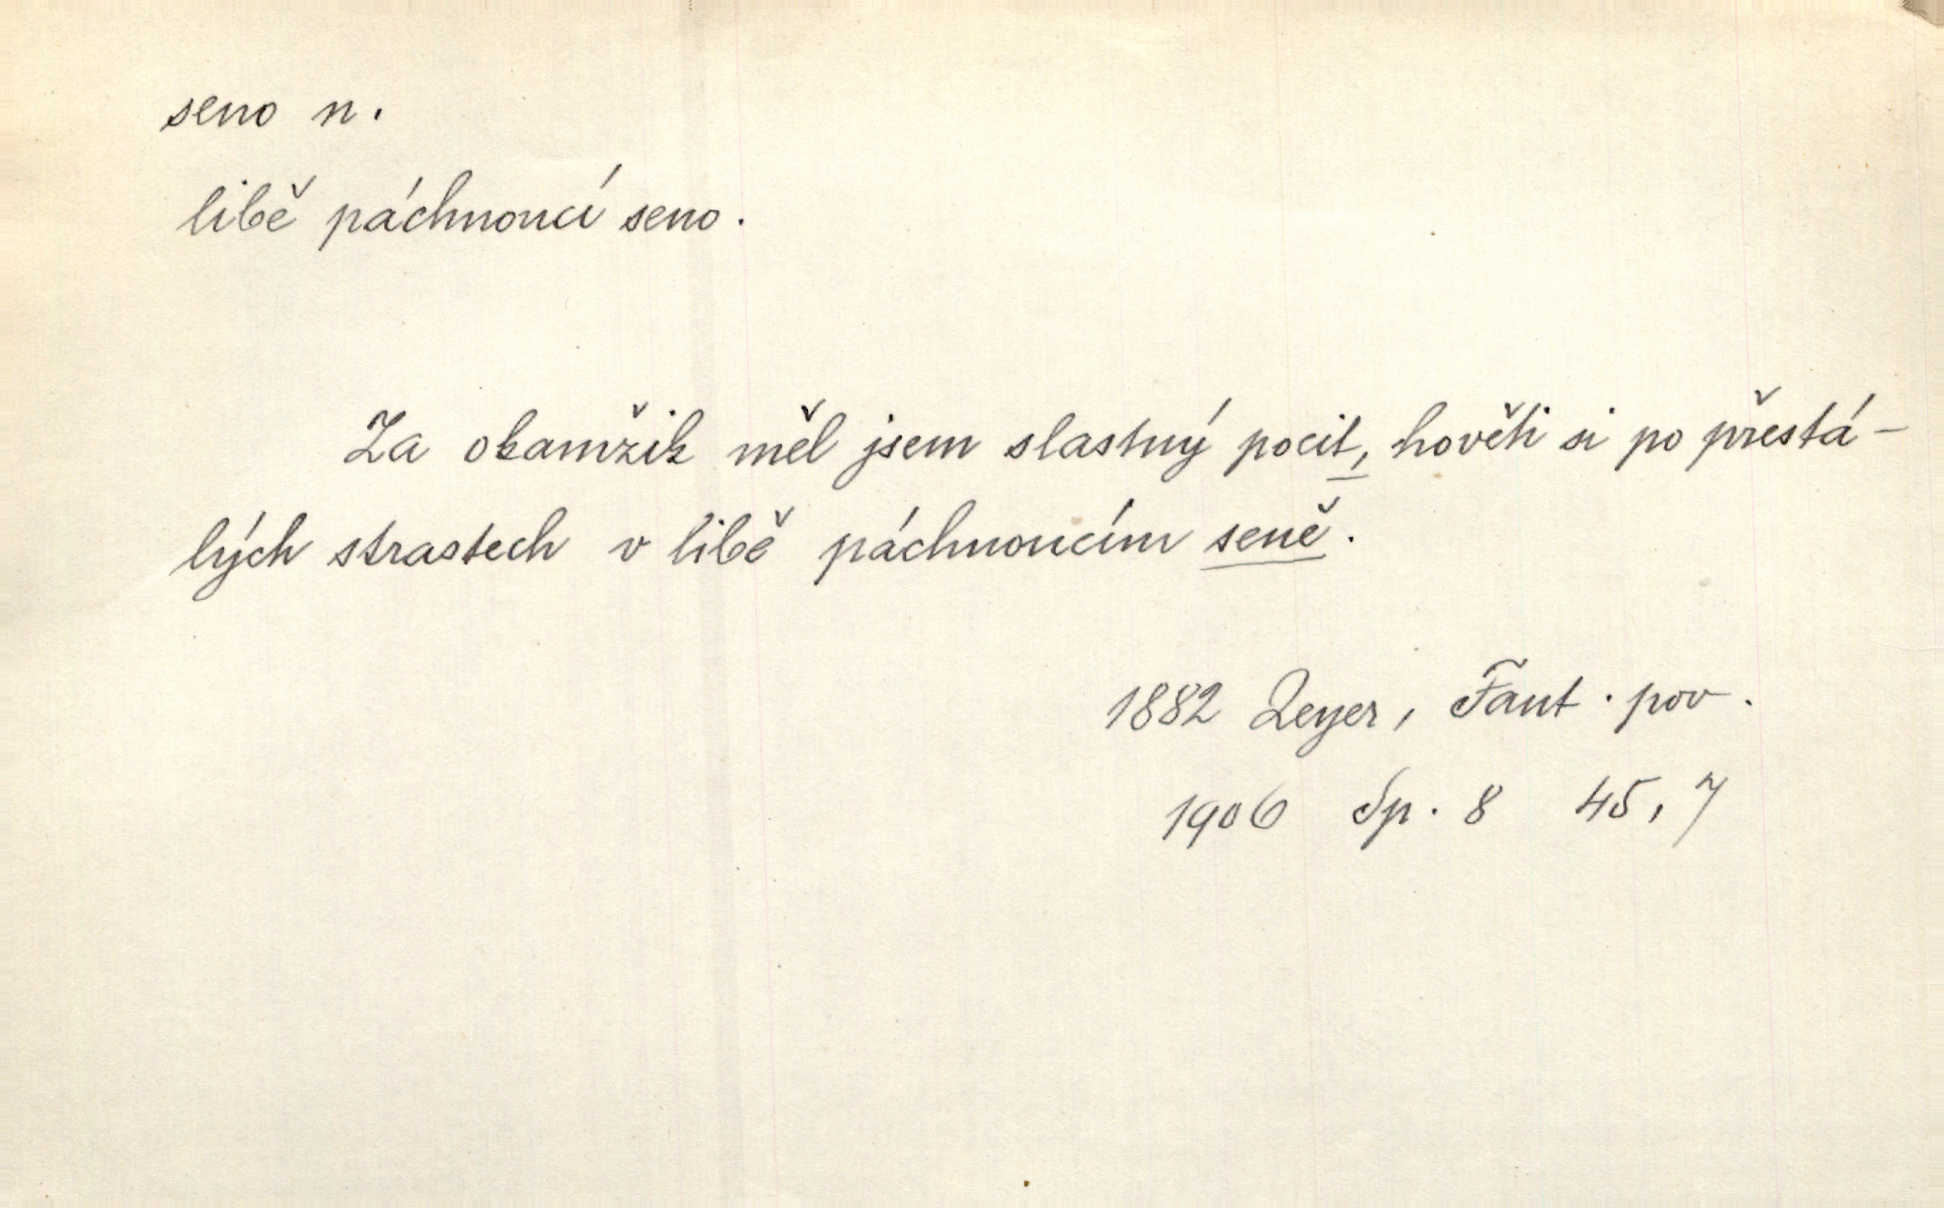 seno n.
libě páchnoucí seno.
Za okamžik měl jsem slastný pocit, hověti si po přestá-
lých strastech v libě páchnoucím seně.
1882 Zeyer, Fant. pov.
1906 Sp. 8 45, 7